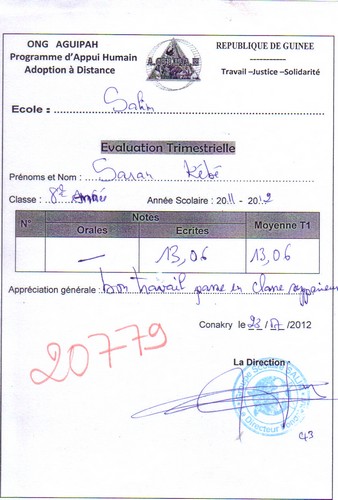 ONG AGUIPAH
Programme d'Appui Humain
Adoption à Distance
REPUBLIQUE DE GUINEE
-----------
Travail –Justice –Solidarité
Ecole : Salim
Evaluation Trimestrielle
Prénoms et Nom : Saran Kébé
Classe : 8e Année Année Scolaire : 2011 - 2012
N° Notes Moyenne T1
Orales Ecrites
— 13,06 13,06
Appréciation générale : bon travail passe en classe supérieure
Conakry le 23/07/2012
20779
La Direction
C43